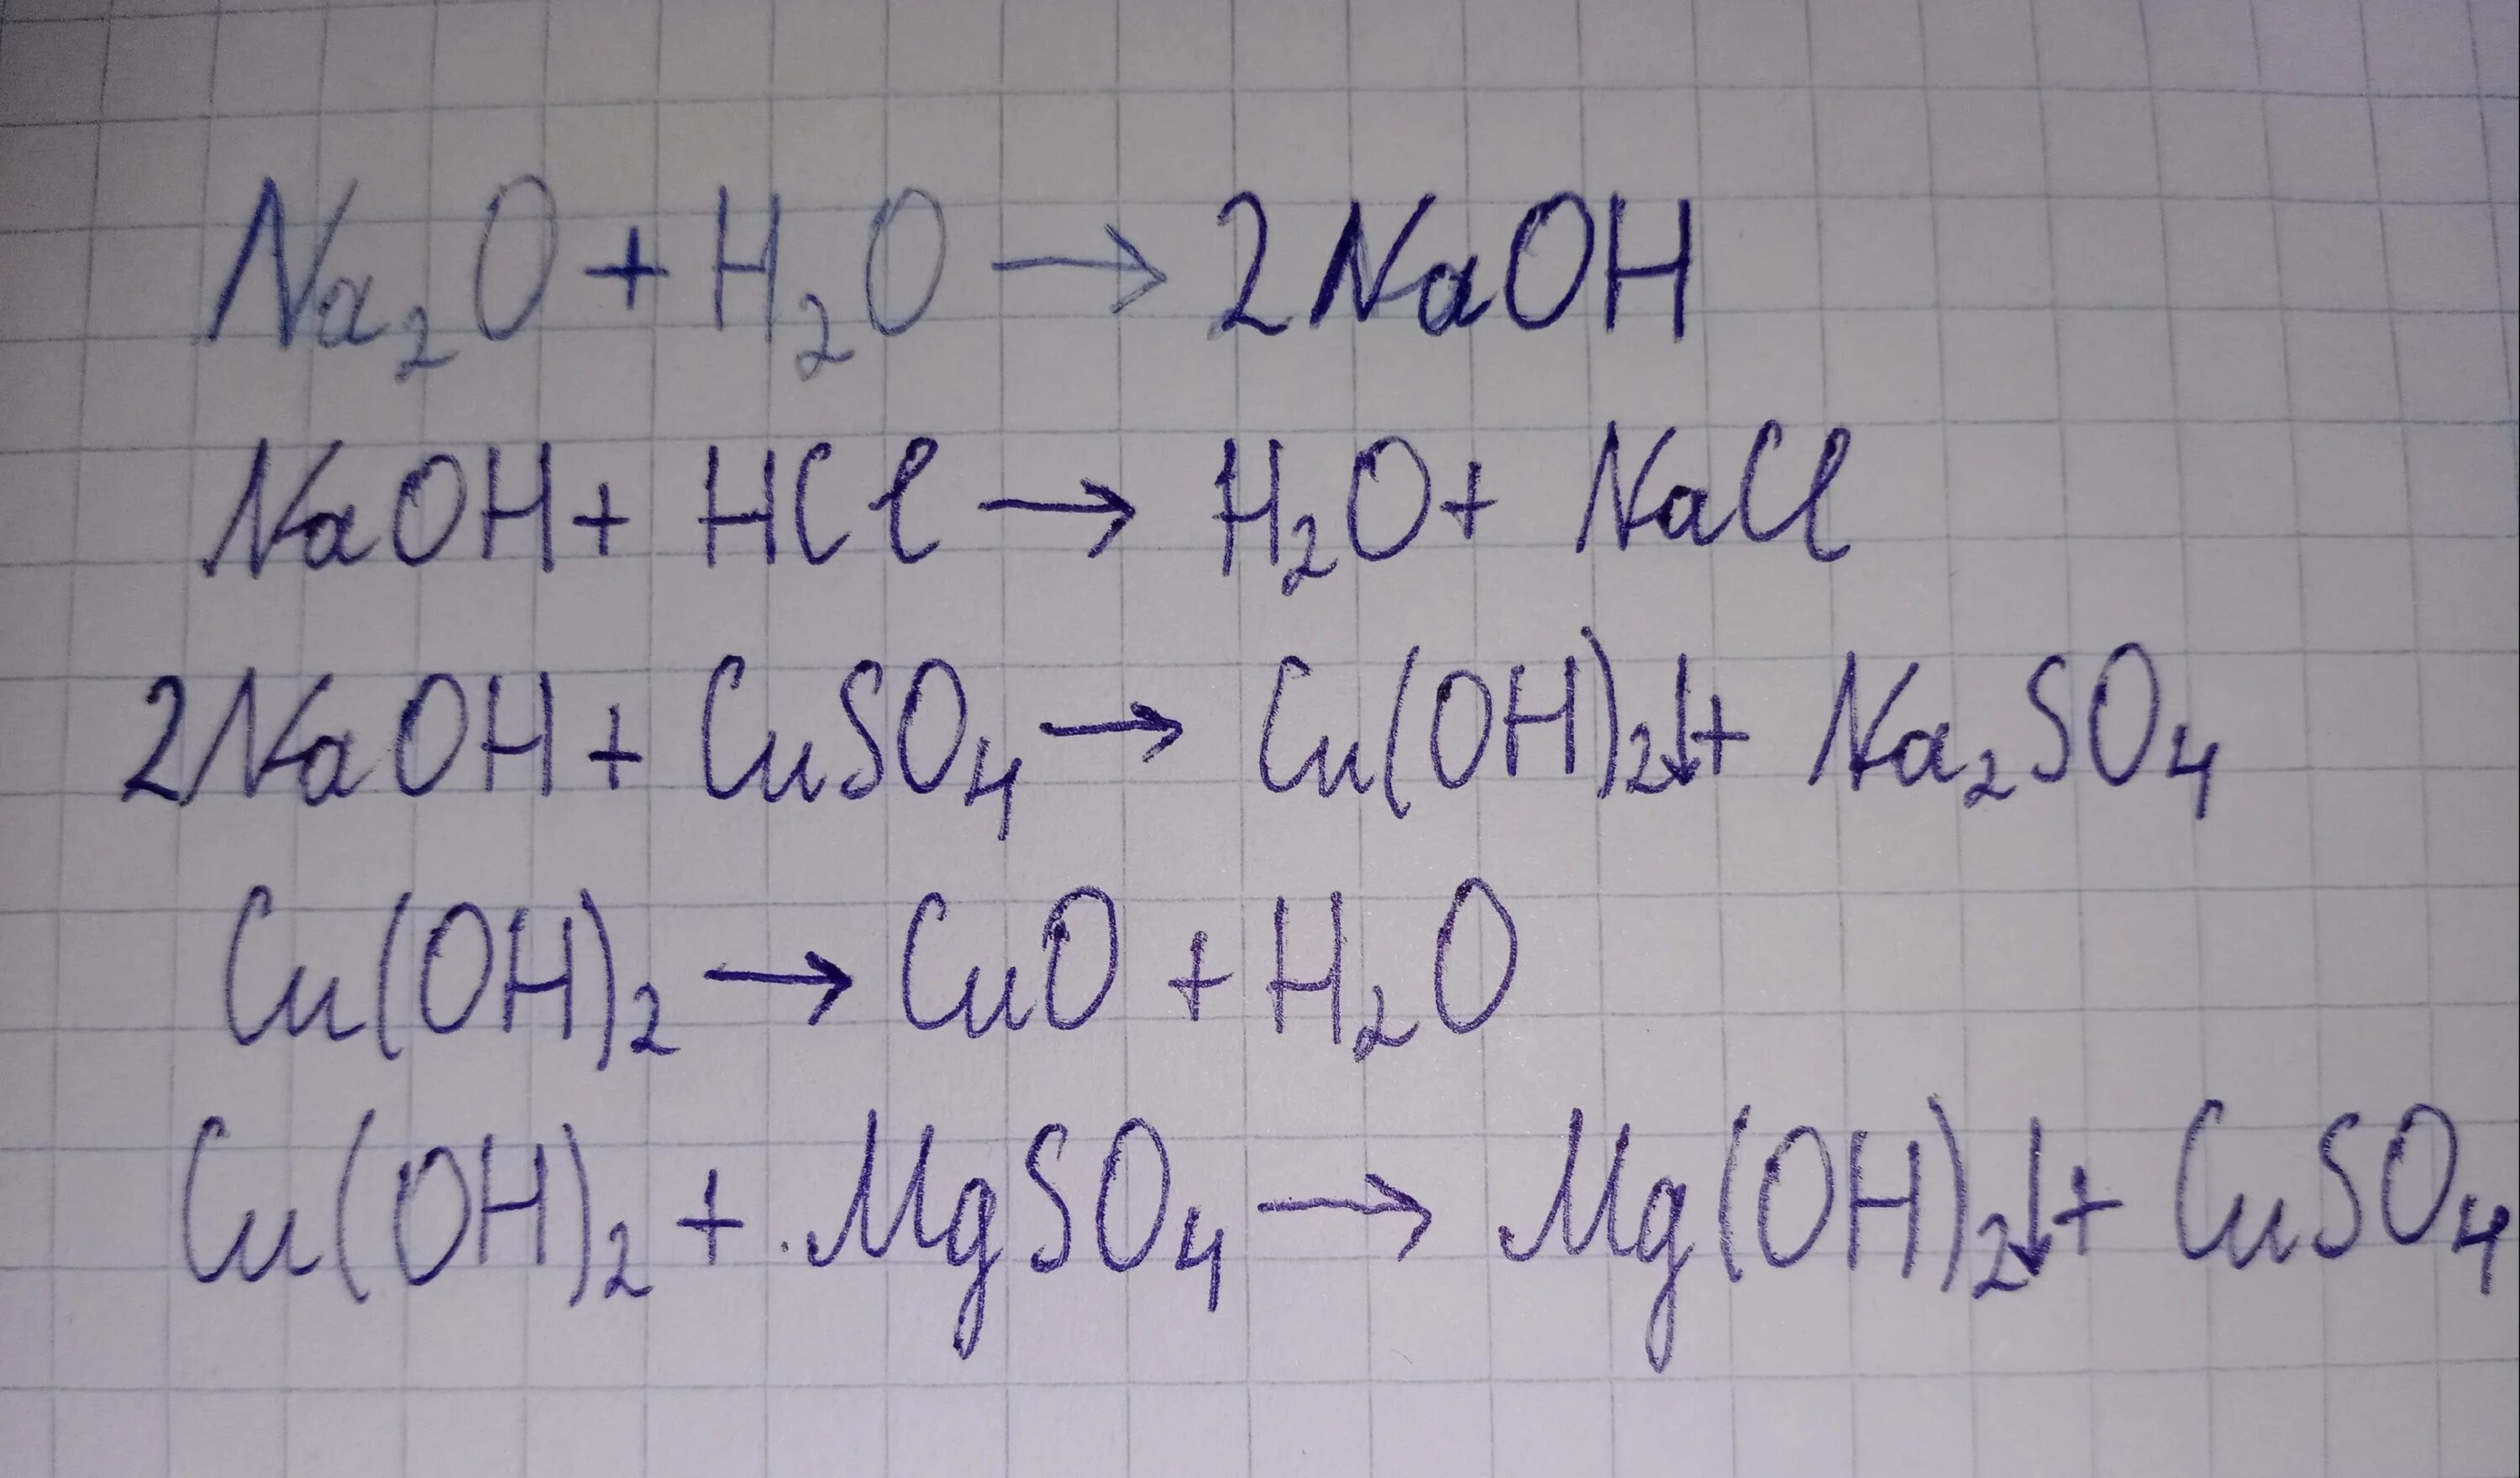 Na₂O + H₂O → 2NaOH
NaOH + HCl → H₂O + NaCl
2NaOH + CuSO₄ → Cu(OH)₂↓ + Na₂SO₄
Cu(OH)₂ → CuO + H₂O
Cu(OH)₂ + MgSO₄ → Mg(OH)₂↓ + CuSO₄